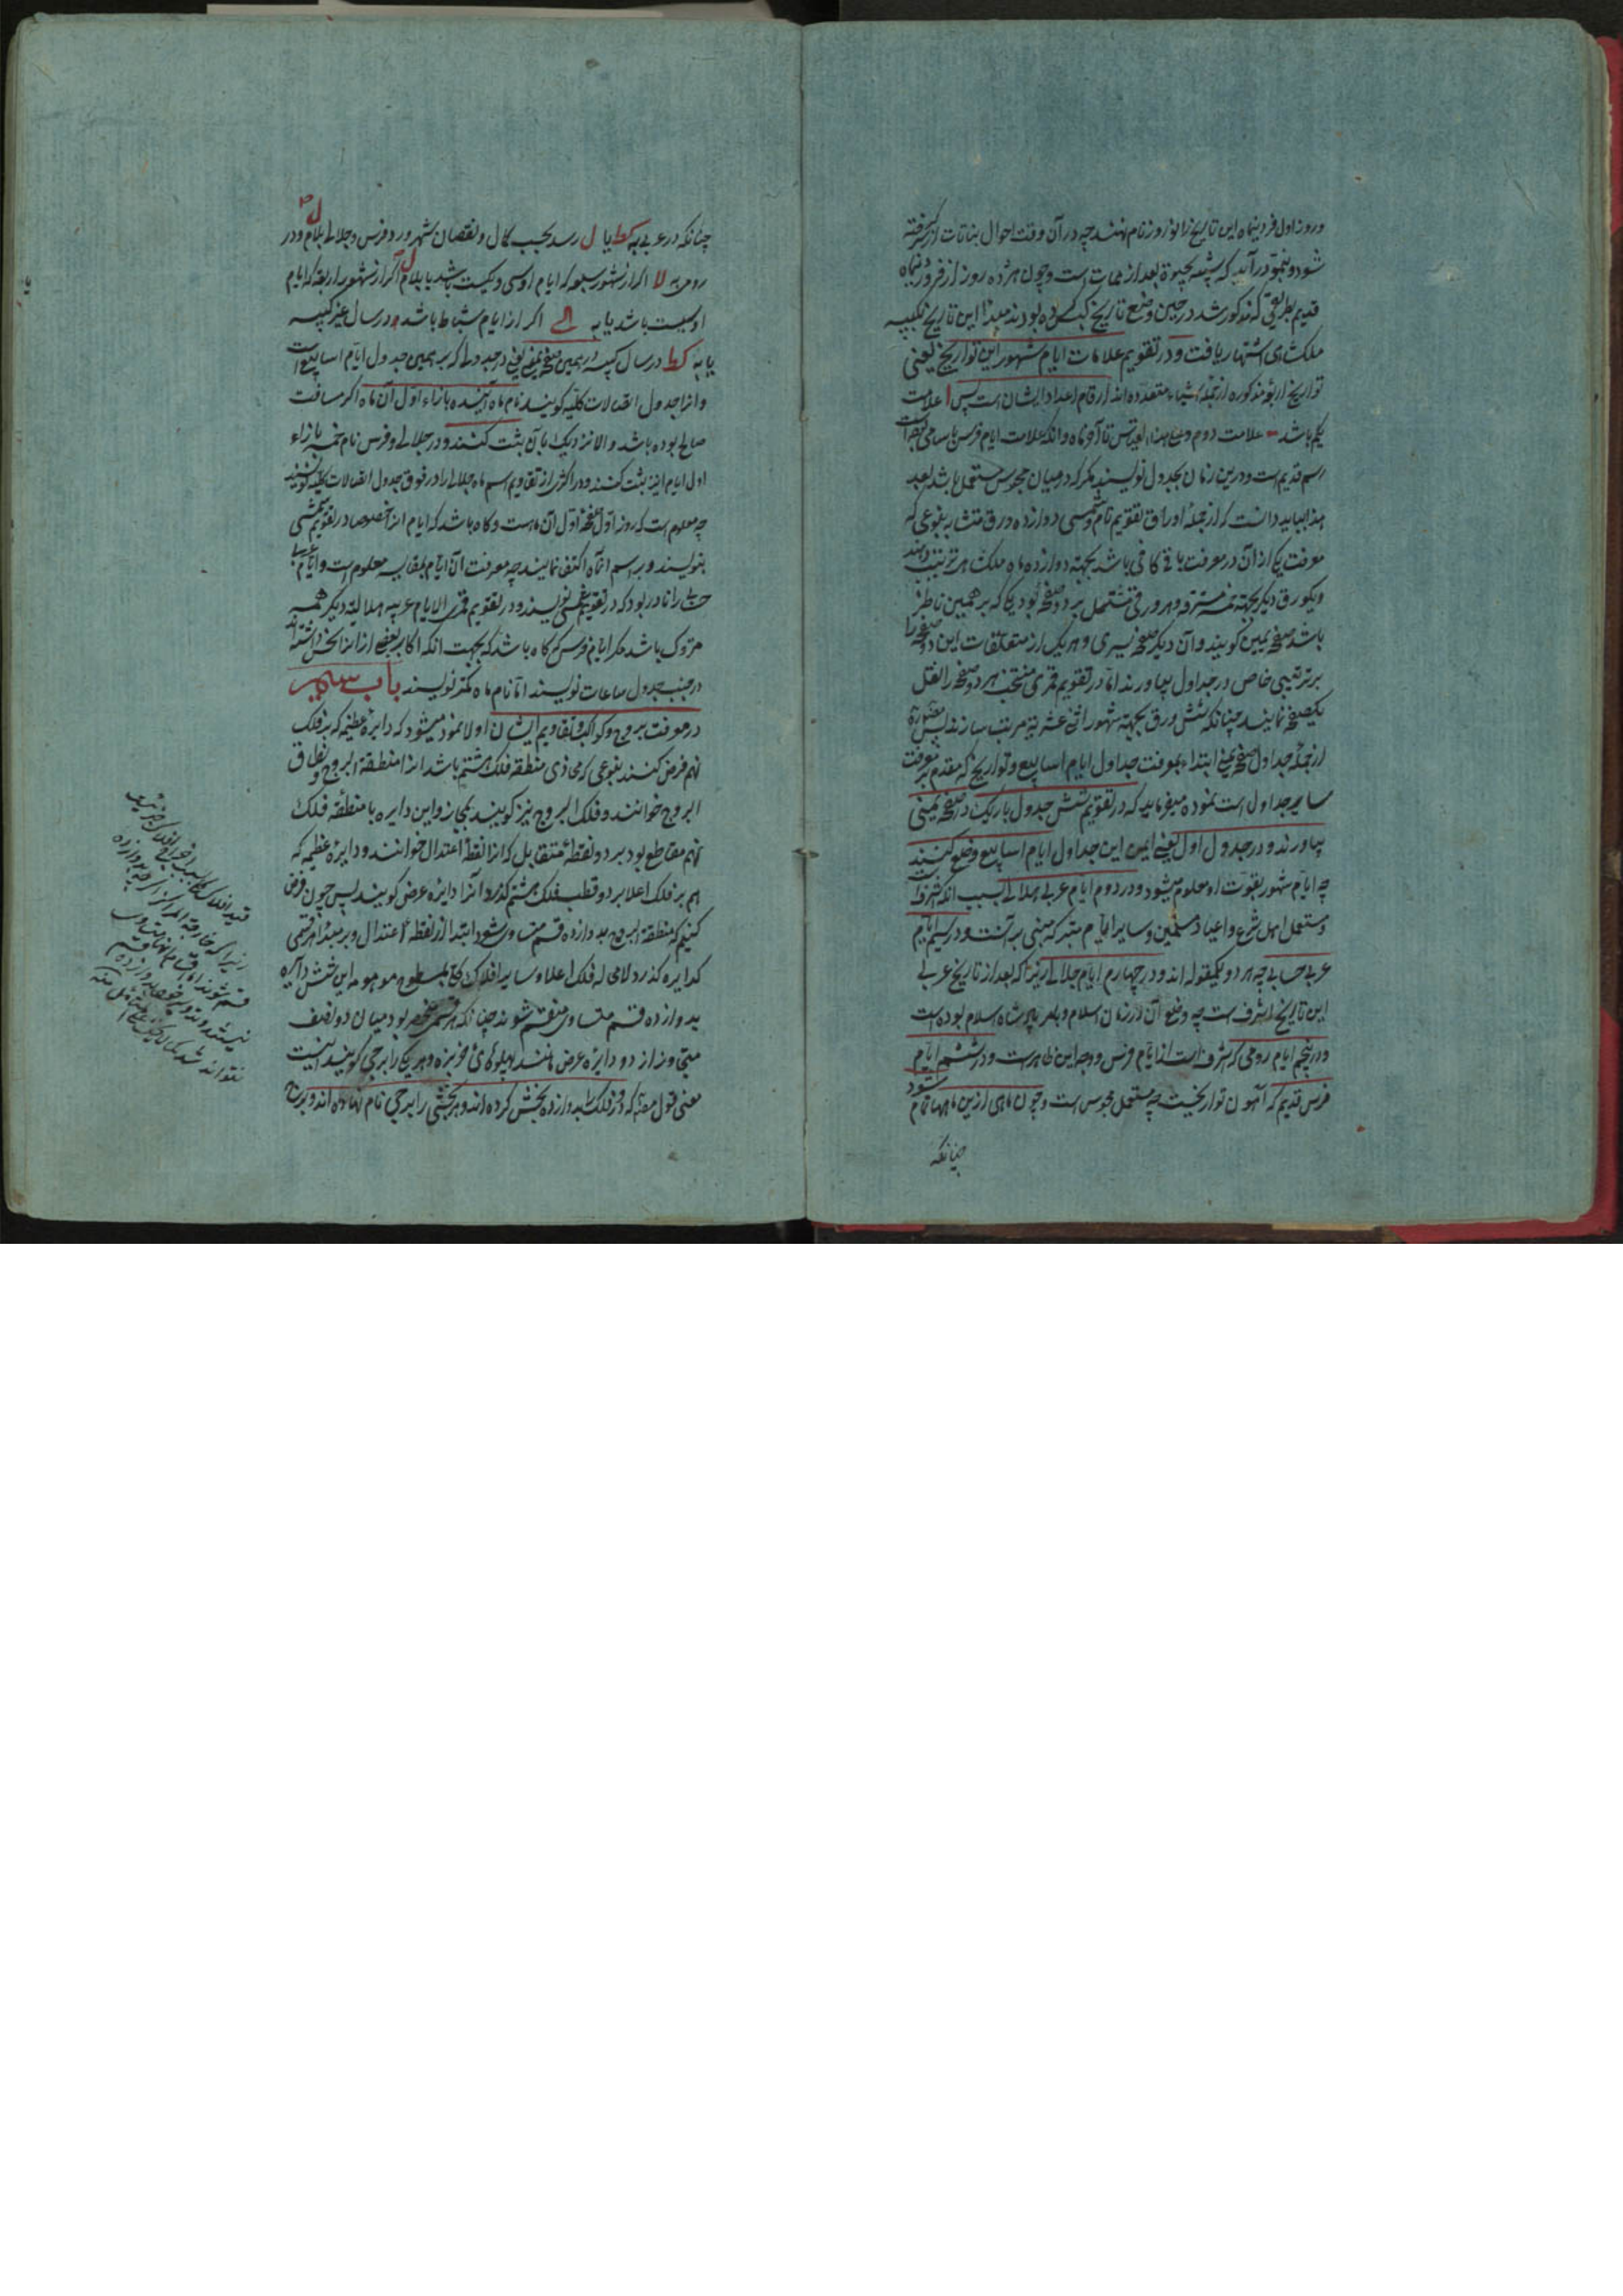 و روز اول فروردینماه این تاریخ را نوروز نام نهند چه در آن وقت احوال نباتات از سر گرفته
شود و بنمو درآید که شبیه بحیوة بعد از ممات است و چون هژده روز از فروردینماه
قدیم بطریقی که مذکور شد در حین وضع تاریخ کبس کرده بودند معهذا این تاریخ بکبیسه
ملکشاهی اشتهار یافت و در تقویم علامات ایام شهور این تواریخ یعنی
تواریخ اربعه مذکوره از جمله اشیاء متعدده اند ارقام اعداد ایشان است پس ا علامت
یکم باشد ب علامت دوم و علی هذا القیاس تا آخر ماه و آنکه علامت ایام فرس باسامی
رسم قدیم است و درین زمان بجدول نویسند مگر که در میان مجوس مستعمل باشد بعد
هذا بباید دانست که از جمله اوراق تقویم تام شمسی دوازده ورق متشابه بنوعی که
معرفت یکی از آن در معرفت باقی کافی باشد بجهة دوازده ماه ملکشاهی ترتیب دهند
و یکورق دیگر بجهة خمسه مسترقه و هر ورقی مشتمل بر دو صفحه بود یکی که بر همین ناظر
باشد صفحه یمین گویند و آن دیگر صفحه یسری و هر یک از متعلقات این دو صفحه را
بر ترتیبی خاص در جداول بیاورند اما در تقویم قمری منتخب هر دو صفحه را نقل
یکصفحه نمایند چنانکه شش ورق بجهة شهور اثنی عشریه مرتب سازند پس
از جمله جداول صفحه یمنی ابتدا بمعرفت جداول ایام اسابیع و تواریخ که مقدم بر معرفت
سایر جداول است نموده میفرماید که در تقویم شش جدول باریک در صفحه یمینی
بیاورند و در جدول اول یعنی ایمن این جداول ایام اسابیع وضع کنند
چه ایام شهور بقوت او معلوم میشود و در دوم ایام عربی هلالی بسبب آنکه اشرف است
و مستعمل اهل شرع و اعیاد مسلمین و سایر ایام متبرکه مبنی بر آنست و در سیم ایام
عربی حسابی چه هر دو یکمقوله اند و در چهارم ایام جلالی زیرا که بعد از تاریخ عربی
این تاریخ اشرف است چه وضع آن در زمان اسلام و بامر پادشاه اسلام بوده است
و در پنجم ایام رومی که اشرف است از ایام فرس و وجه این ظاهر است و در ششم ایام
فرس قدیم که اهون تواریخست چه مستعمل مجوس است و چون ماهی ازین ماهها تمام شود
چنانکه
چنانکه در عربی به کط یا ل رسد بحسب کمال و نقصان شهور و در فرس و جلالی بلام و در
رومی به لا اگر از شهور سبعه که ایام او سی و یکست باشد یا بلام اگر از شهور اربعه که ایام
او سیست باشد یا به کح اگر از ایام شباط باشد و در سال غیر کبیسه
یا به کط در سال کبیسه در همین صفحه یمنی یعنی در جدولی که بر یمین جدول ایام اسابیع است
و آنرا جدول اتصالات کلیه گویند نام ماه آینده بازاء اول آن ماه اگر مسافت
صالح بوده باشد و الا نزدیک بآن ثبت کنند و در جلالی و فرس نام خمسه بازاء
اول ایام اینه ثبت کنند و در اکثری از تقاویم اسم ماه جلالی را در فوق جدول اتصالات کلیه نویسند
چه معلوم است که روز اول صفحه اول آن ماهست و گاه باشد که ایام آنرا خصوصا در تقویم شمسی
ننویسند و بر اسم آنماه اکتفا نمایند چه معرفت آن ایام بمقایسه معلوم است و ایام عربی
حسابی را نادر بود که در تقویم شمسی نویسند و در تقویم قمری الا ایام عربیه هلالیه دیگر همه
متروک باشد مگر ایام فرس که گاه باشد که بجهت آنکه اکابر بعضی از آنرا نحس داشته اند
در جنب جدول ساعات نویسند اما نام ماه کمتر نویسند باب سیم
در معرفت بروج و کواکب و تقاویم ایشان اولا نموده میشود که دایره عظیمه که بر فلک
نهم فرض کنند بنوعی که محاذی منطقه فلک هشتم باشد آنرا منطقة البروج و نطاق
البروج خوانند و فلک البروج نیز گویند بمجاز و این دایره با منطقه فلک
نهم مقاطع بود بر دو نقطه متقابل که آنرا نقطه اعتدال خوانند و دایره عظیمه که
هم بر فلک اعلا بر دو قطب فلک هشتم گذرد آنرا دایره عرض گویند پس چون فرض
کنیم که منطقة البروج بدوازده قسم متساوی شود ابتدا از نقطه اعتدال و بر مبدأ هر قسمی
که دایره گذرد لامحاله فلک اعلا و سایر افلاک کلیه بسطوح موهومه این شش دایره
بدوازده قسم متساوی منقسم شوند چنانکه هر قسمی محصور بود میان دو نصف
متجاوز از دو دایره عرض مانند پهلوهای خربزه و هر یکی را برجی گویند اینست
معنی قول مصنف که دور فلک را بدوازده بخش کرده اند و هر بخشی را برجی نام نهاده اند و برج